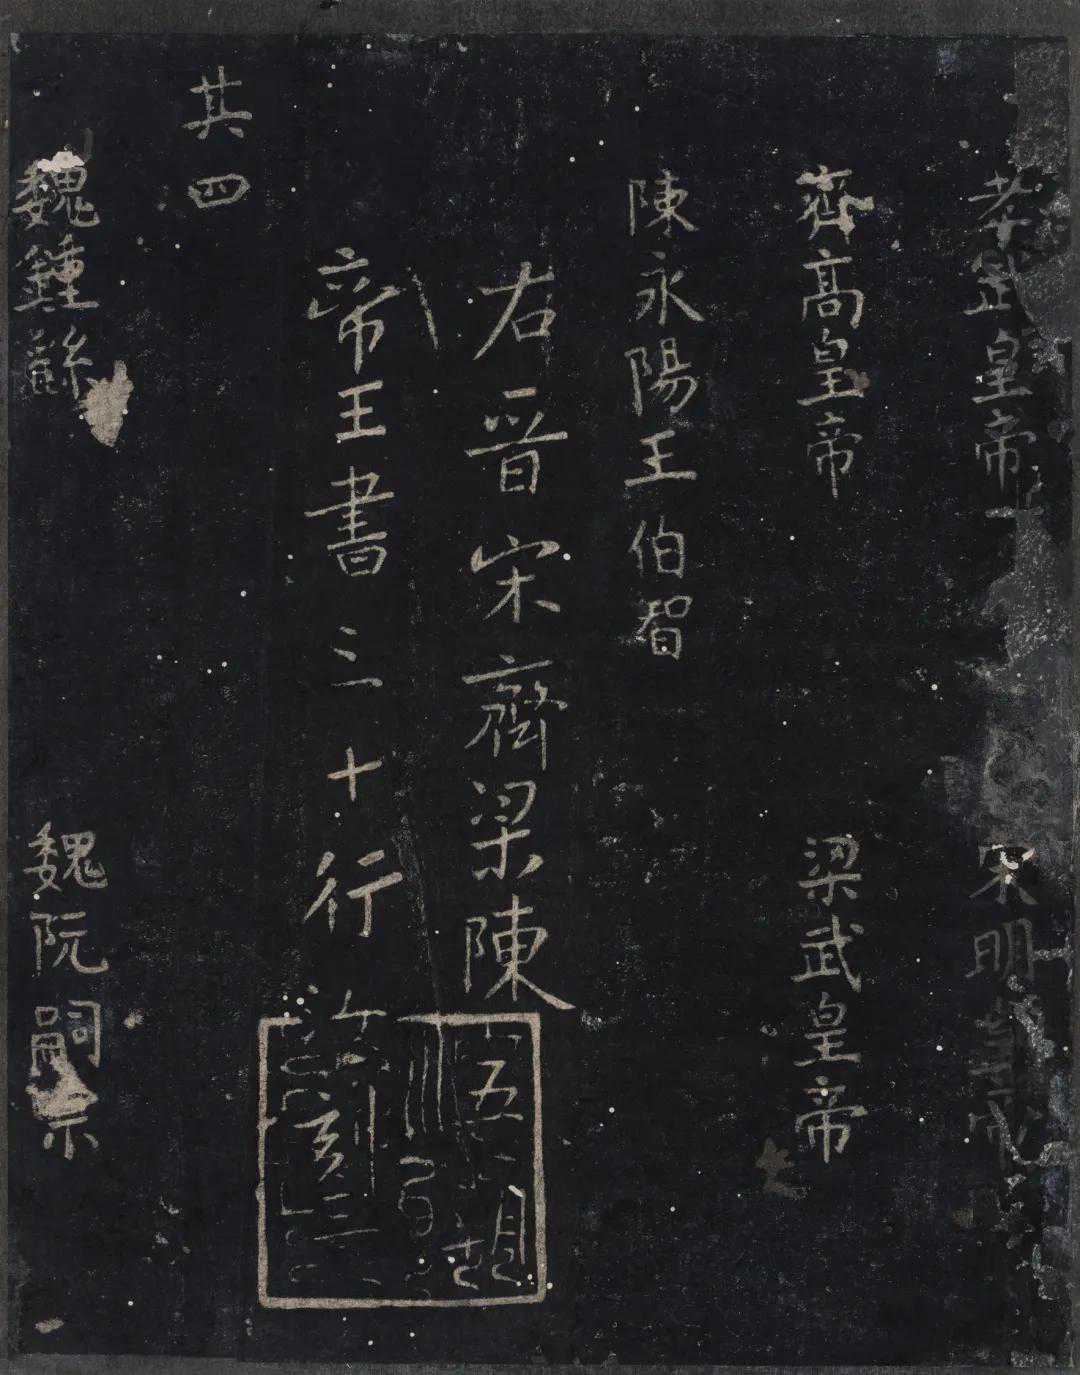 孝武皇帝 宋明皇帝
齊高皇帝 梁武皇帝
陳永陽王伯智
右晉宋齊梁陳
帝王書三十行
其四
魏鍾繇 魏阮嗣宗